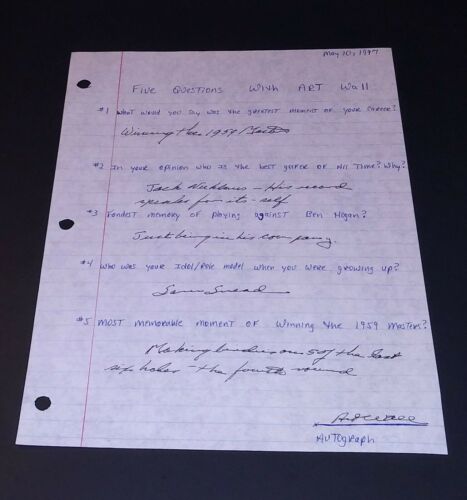 May 10, 1997
Five Questions With ART Wall
#1 What would you say was the greatest moment of your career?
Winning the 1959 Masters
#2 In your opinion who is the best golfer of All Time? Why?
Jack Nicklaus - His record
speaks for its-self
#3 Fondest memory of playing against Ben Hogan?
Just being in his company.
#4 Who was your Idol/Role model when you were growing up?
Sam Snead
#5 MOST memorable moment of winning the 1959 Masters?
Making birdies on 5 of the last
six holes - the fourth round
Art Wall
AUTOgraph